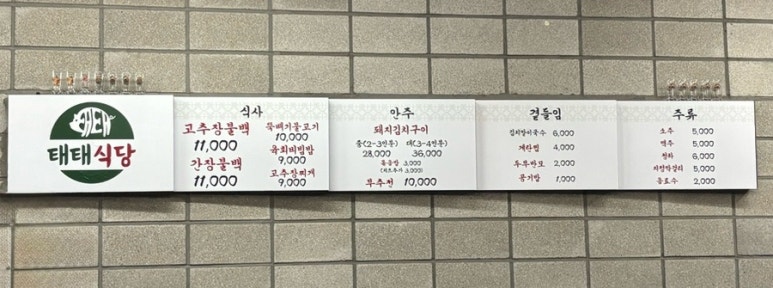 태태
태태식당
식사
고추장불백
11,000
간장불백
11,000
뚝배기불고기
10,000
육회비빔밥
9,000
고추장찌개
9,000
안주
돼지김치구이
중(2-3인분) 대(3-4인분)
28,000 36,000
볶음밥 3,000
부추전 10,000
곁들임
김치말이국수 6,000
계란찜 4,000
두부반모 2,000
공기밥 1,000
주류
소주 5,000
맥주 5,000
청하 6,000
지평막걸리 5,000
음료수 2,000